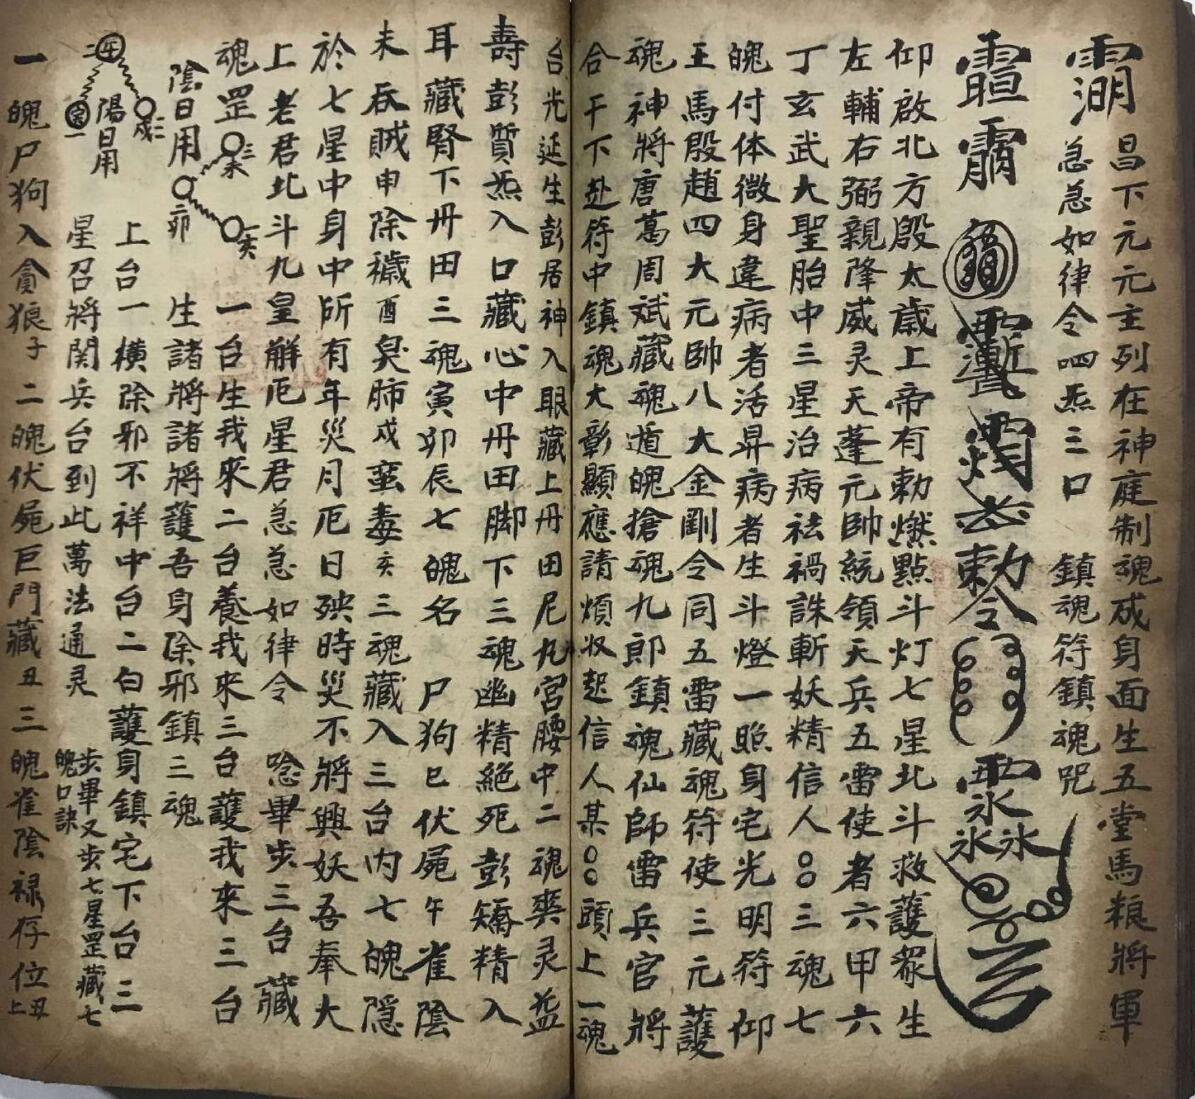 昌下元元主列在神庭制魂成身面生五堂馬粮將軍
急急如律令四炁三口 鎮魂符鎮魂咒
勅令
仰啟北方殷太歲上帝有勅燃點斗灯七星北斗救護眾生
左輔右弼親降威灵天蓬元帥統領天兵五雷使者六甲六
丁玄武大聖胎中三星治病祛禍誅斬妖精信人〇〇三魂七
魄付体微身違病者活昇病者生斗燈一照身宅光明符仰
王馬殷趙四大元帥八大金剛令同五雷藏魂符使三元護
魂神將唐葛周斌藏魂遁魄搶魂九郎鎮魂仙師雷兵官將
合干下赴符中鎮魂大彰顯應請煩收起信人某〇〇頭上一魂
台光延生彭居神入眼藏上丹田尼丸宮腰中二魂爽灵益
壽彭質炁入口藏心中丹田脚下三魂幽精絕死彭矯精入
耳藏腎下丹田三魂寅卯辰七魄名 尸狗巳伏屍午雀陰
未吞賊申除穢酉臭肺戍蜚毒亥三魂藏入三台內七魄隱
於七星中身中所有年災月厄日殃時災不將興妖吾奉大
上老君北斗九皇解厄星君急急如律令 唸畢步三台藏
魂罡 未三 一台生我來二台養我來三台護我來三台
陰日用 二卯 一亥 生諸將諸將護吾身除邪鎮三魂
二午 陽日用 戍三 上台一橫除邪不祥中台二白護身鎮宅下台三
一 星召將関兵台到此萬法通灵 步畢又步七星罡藏七
魄口訣
一魄尸狗入貪狼子二魄伏屍巨門藏丑三魄雀陰祿存位上丑